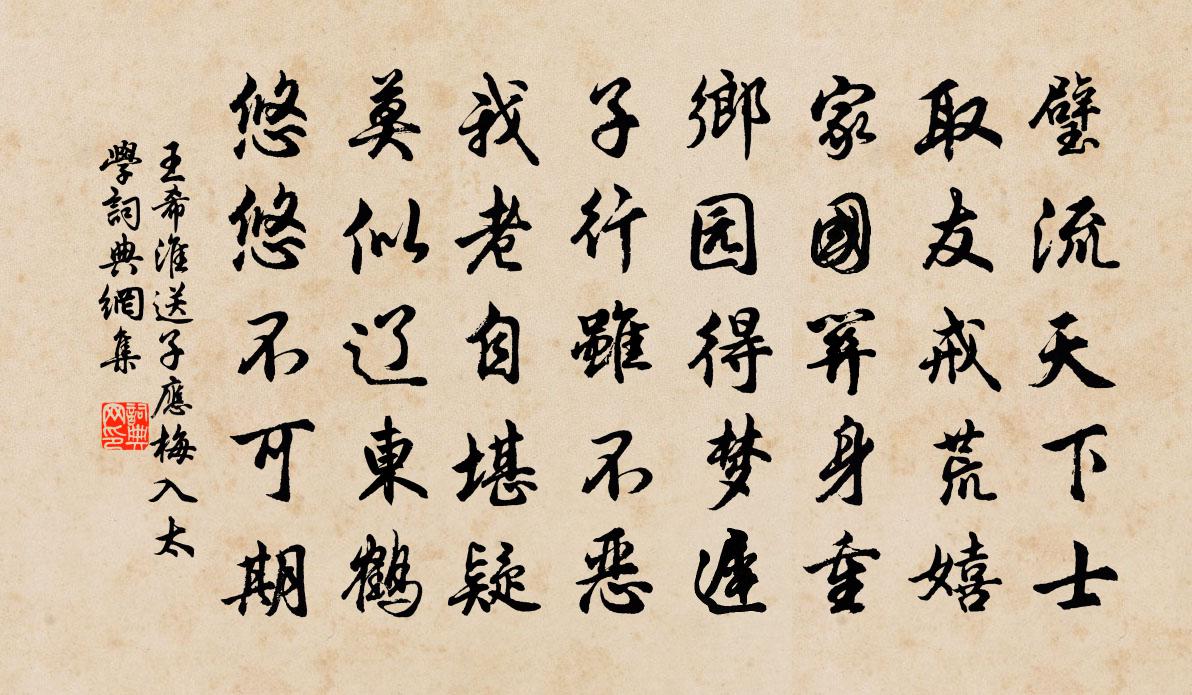 璧流天下士
取友戒荒嬉
家國関身重
鄉园得梦遲
子行雖不惡
我老自堪疑
莫似辽東鶴
悠悠不可期
王希淮送子應梅入太
學詞典網集
詞典
网印